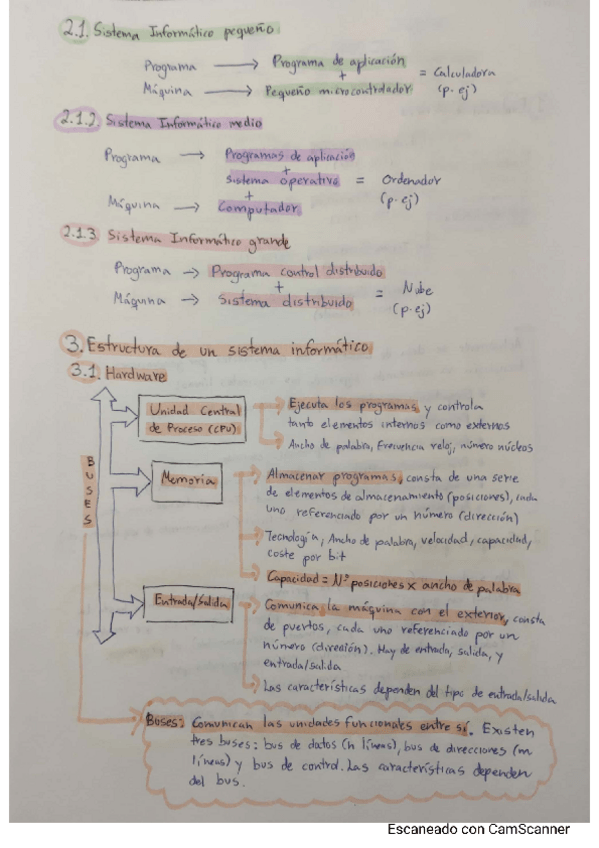 2.1. Sistema Informático pequeño
Programa → Programa de aplicación
+
Máquina → Pequeño microcontrolador
= Calculadora
(p. ej)
2.1.2. Sistema Informático medio
Programa → Programas de aplicación
+
Sistema operativo = Ordenador
(p. ej)
+
Máquina → Computador
2.1.3 Sistema Informático grande
Programa → Programa control distribuido
+
Máquina → Sistema distribuido
= Nube
(p. ej)
3. Estructura de un sistema informático
3.1. Hardware
BUSES
Unidad Central
de Proceso (CPU)
Ejecuta los programas y controla
tanto elementos internos como externos
Ancho de palabra, Frecuencia reloj, número núcleos
Memoria
Almacenar programas, consta de una serie
de elementos de almacenamiento (posiciones), cada
uno referenciado por un número (dirección)
Tecnología, Ancho de palabra, velocidad, capacidad,
coste por bit
Capacidad = Nº posiciones x ancho de palabra
Entrada/Salida
Comunica la máquina con el exterior, consta
de puertos, cada uno referenciado por un
número (direción). Hay de entrada, salida, y
entrada/salida
Las características dependen del tipo de entrada/salida
Buses: Comunican las unidades funcionales entre sí. Existen
tres buses: bus de datos (n líneas), bus de direcciones (m
líneas) y bus de control. Las características dependen
del bus.
Escaneado con CamScanner